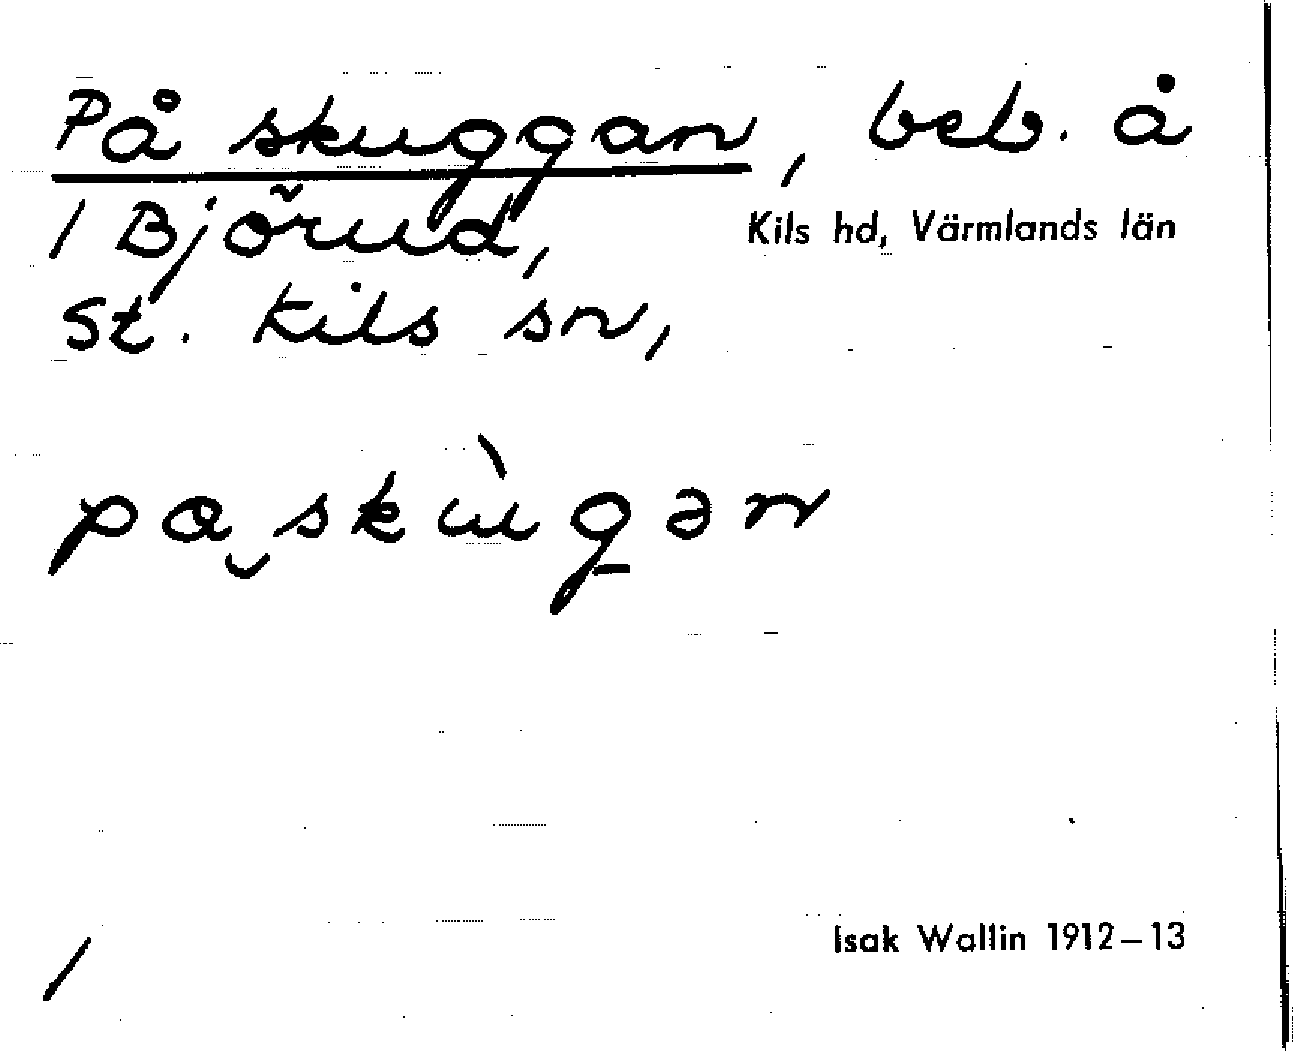 På skuggan, beb. å
1 Björud, Kils hd, Värmlands län
St. Kils sn,
pa skùgən
/
Isak Wallin 1912–13